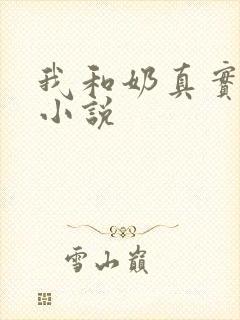 我和奶真實
小説
雪山巔